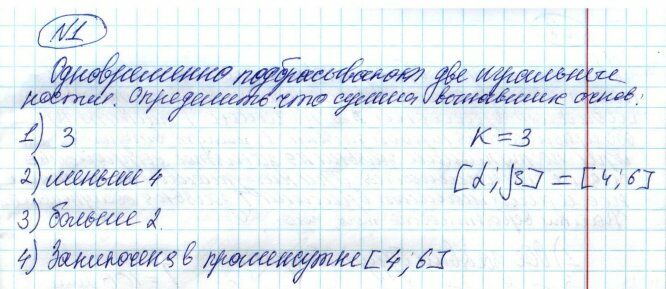 N1
Одновременно подбрасывают две игральные
кости. Определить что сумма выпавших очков:
1) 3
K = 3
2) меньше 4
[α; β] = [4; 6]
3) больше 2.
4) Заключена в промежутке [4; 6]